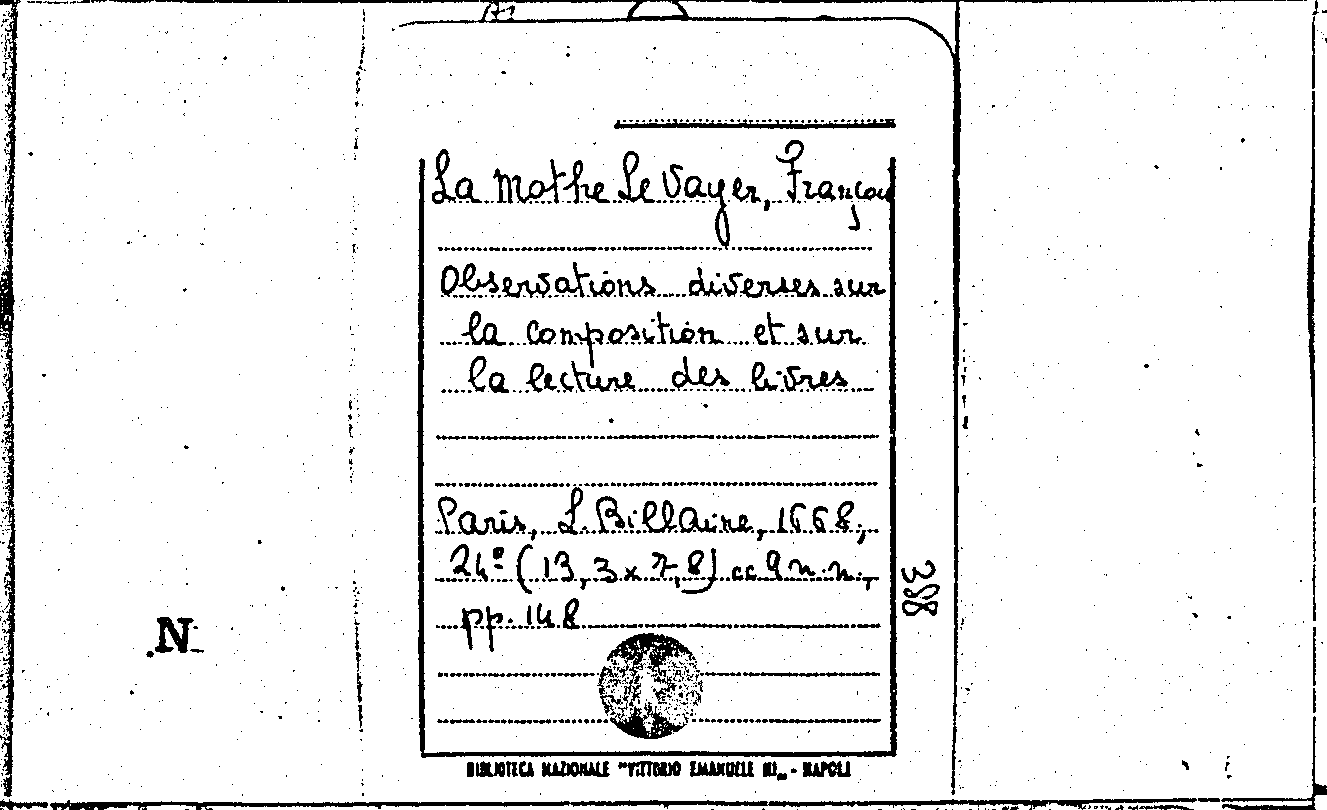 La Mothe Le Vayer, François
Observations diverses sur
la composition et sur
la lecture des livres
Paris, L. Billaine, 1668,
24° (13,3 x 7,8) cc 9 n.n.,
pp. 148
388
N
BIBLIOTECA NAZIONALE "VITTORIO EMANUELE III" - NAPOLI